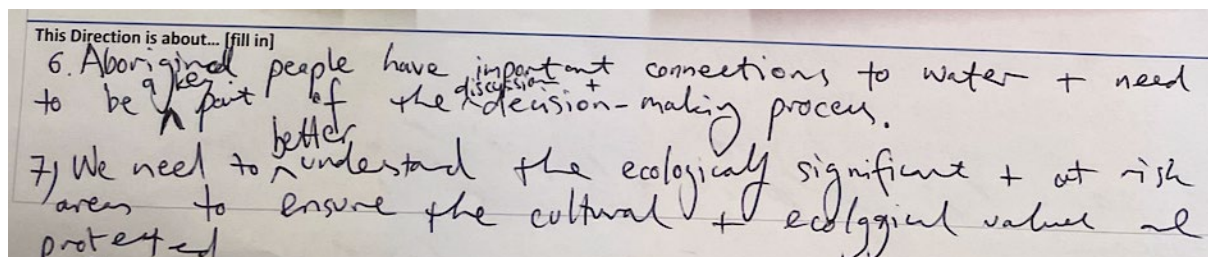 This Direction is about... [fill in]
6. Aboriginal people have important connections to water + need
to be a key part of the discussion + decision-making process.
7) We need to better understand the ecologically significant + at risk
areas to ensure the cultural + ecological values are
protected